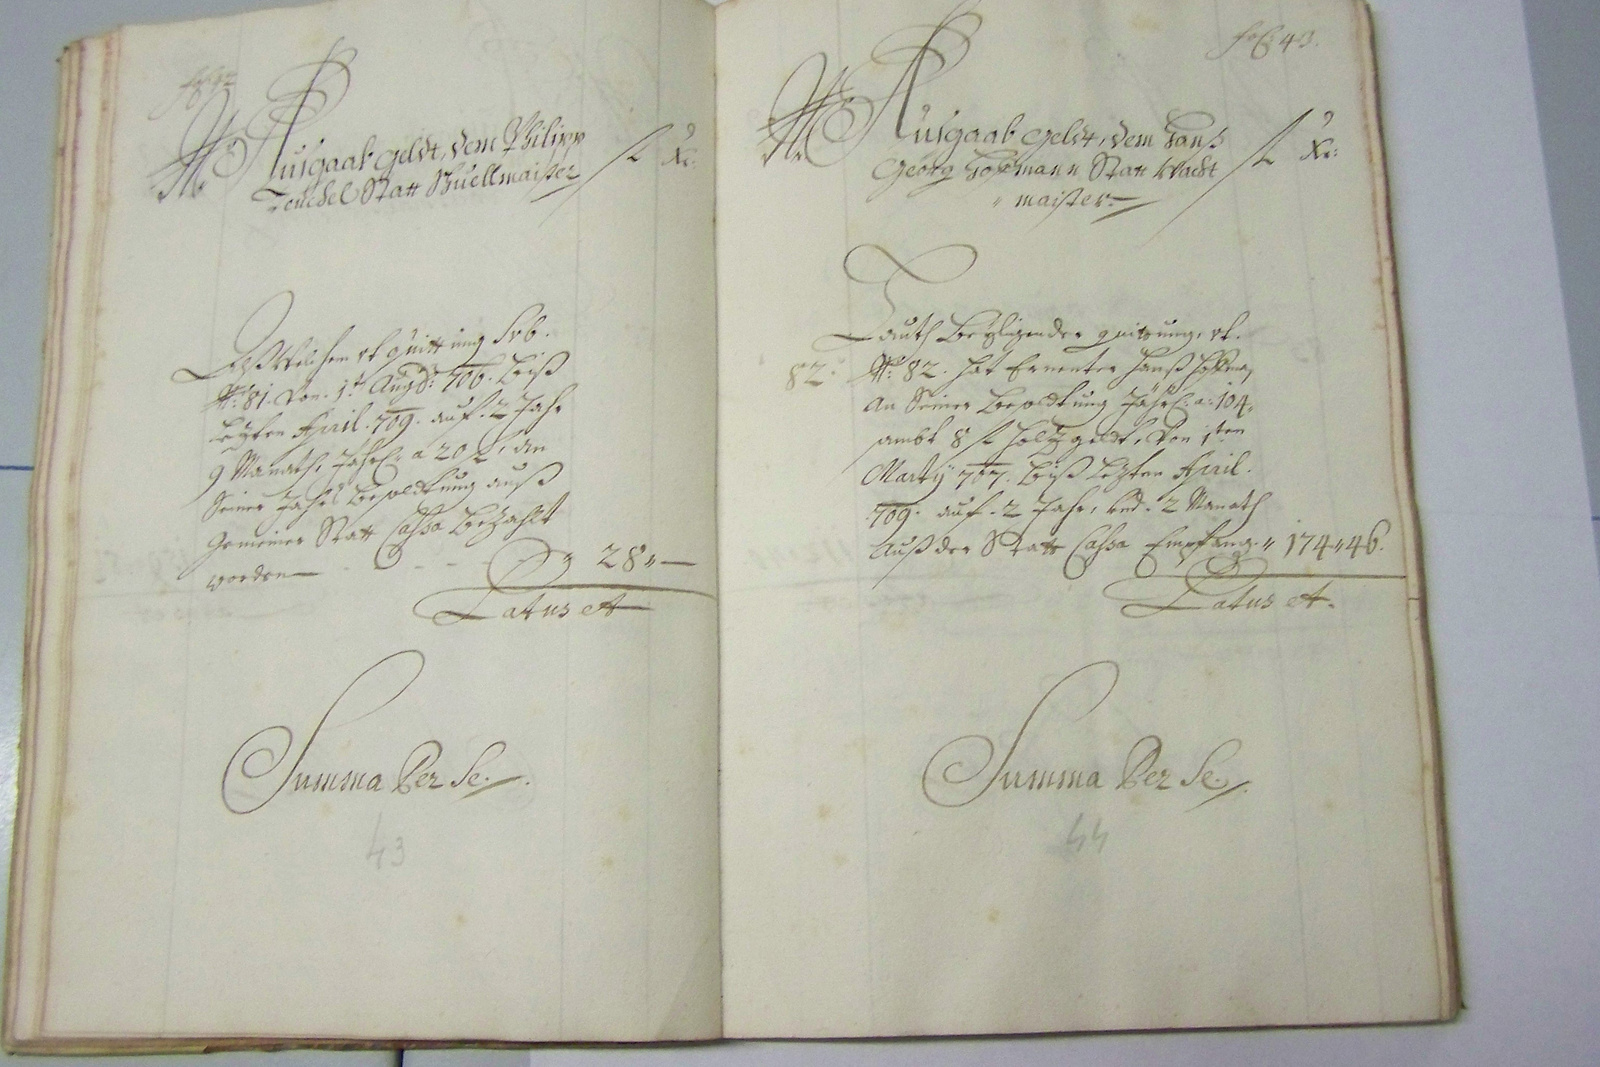 fol: 42
Ausgaab geldt, dem Philipp
Teüchel Statt Stuellmaister
fl xr:
Nº: 81. Von 1t Aug: 706. biß
Lezten April. 709. auf. 2 Jahr
9 Monath, Jährl: a 20 fl, an
Seiner Jahrs besoldtung auß
Gemeiner Statt Cassa bezahlt
worden 28
Latus et
Summa Per Se.
43
fol: 43.
Ausgaab geldt, dem Hanß
Georg Hoffmann Statt Wacht
maister
fl xr:
Lauth beyligender quittung, sb.
82. Nº: 82. hat Ernenter Hanß Hoffman
An Seiner besoldtung Jährl: a: 104,
sambt 8 fl holtzgeldt, Von 1ten
Marty 707. biß Lezten April.
709. auf. 2 Jahr, und. 2 Monath
Auß der Statt Cassa Empfang. 174 46.
Latus et.
Summa Per Se.
44